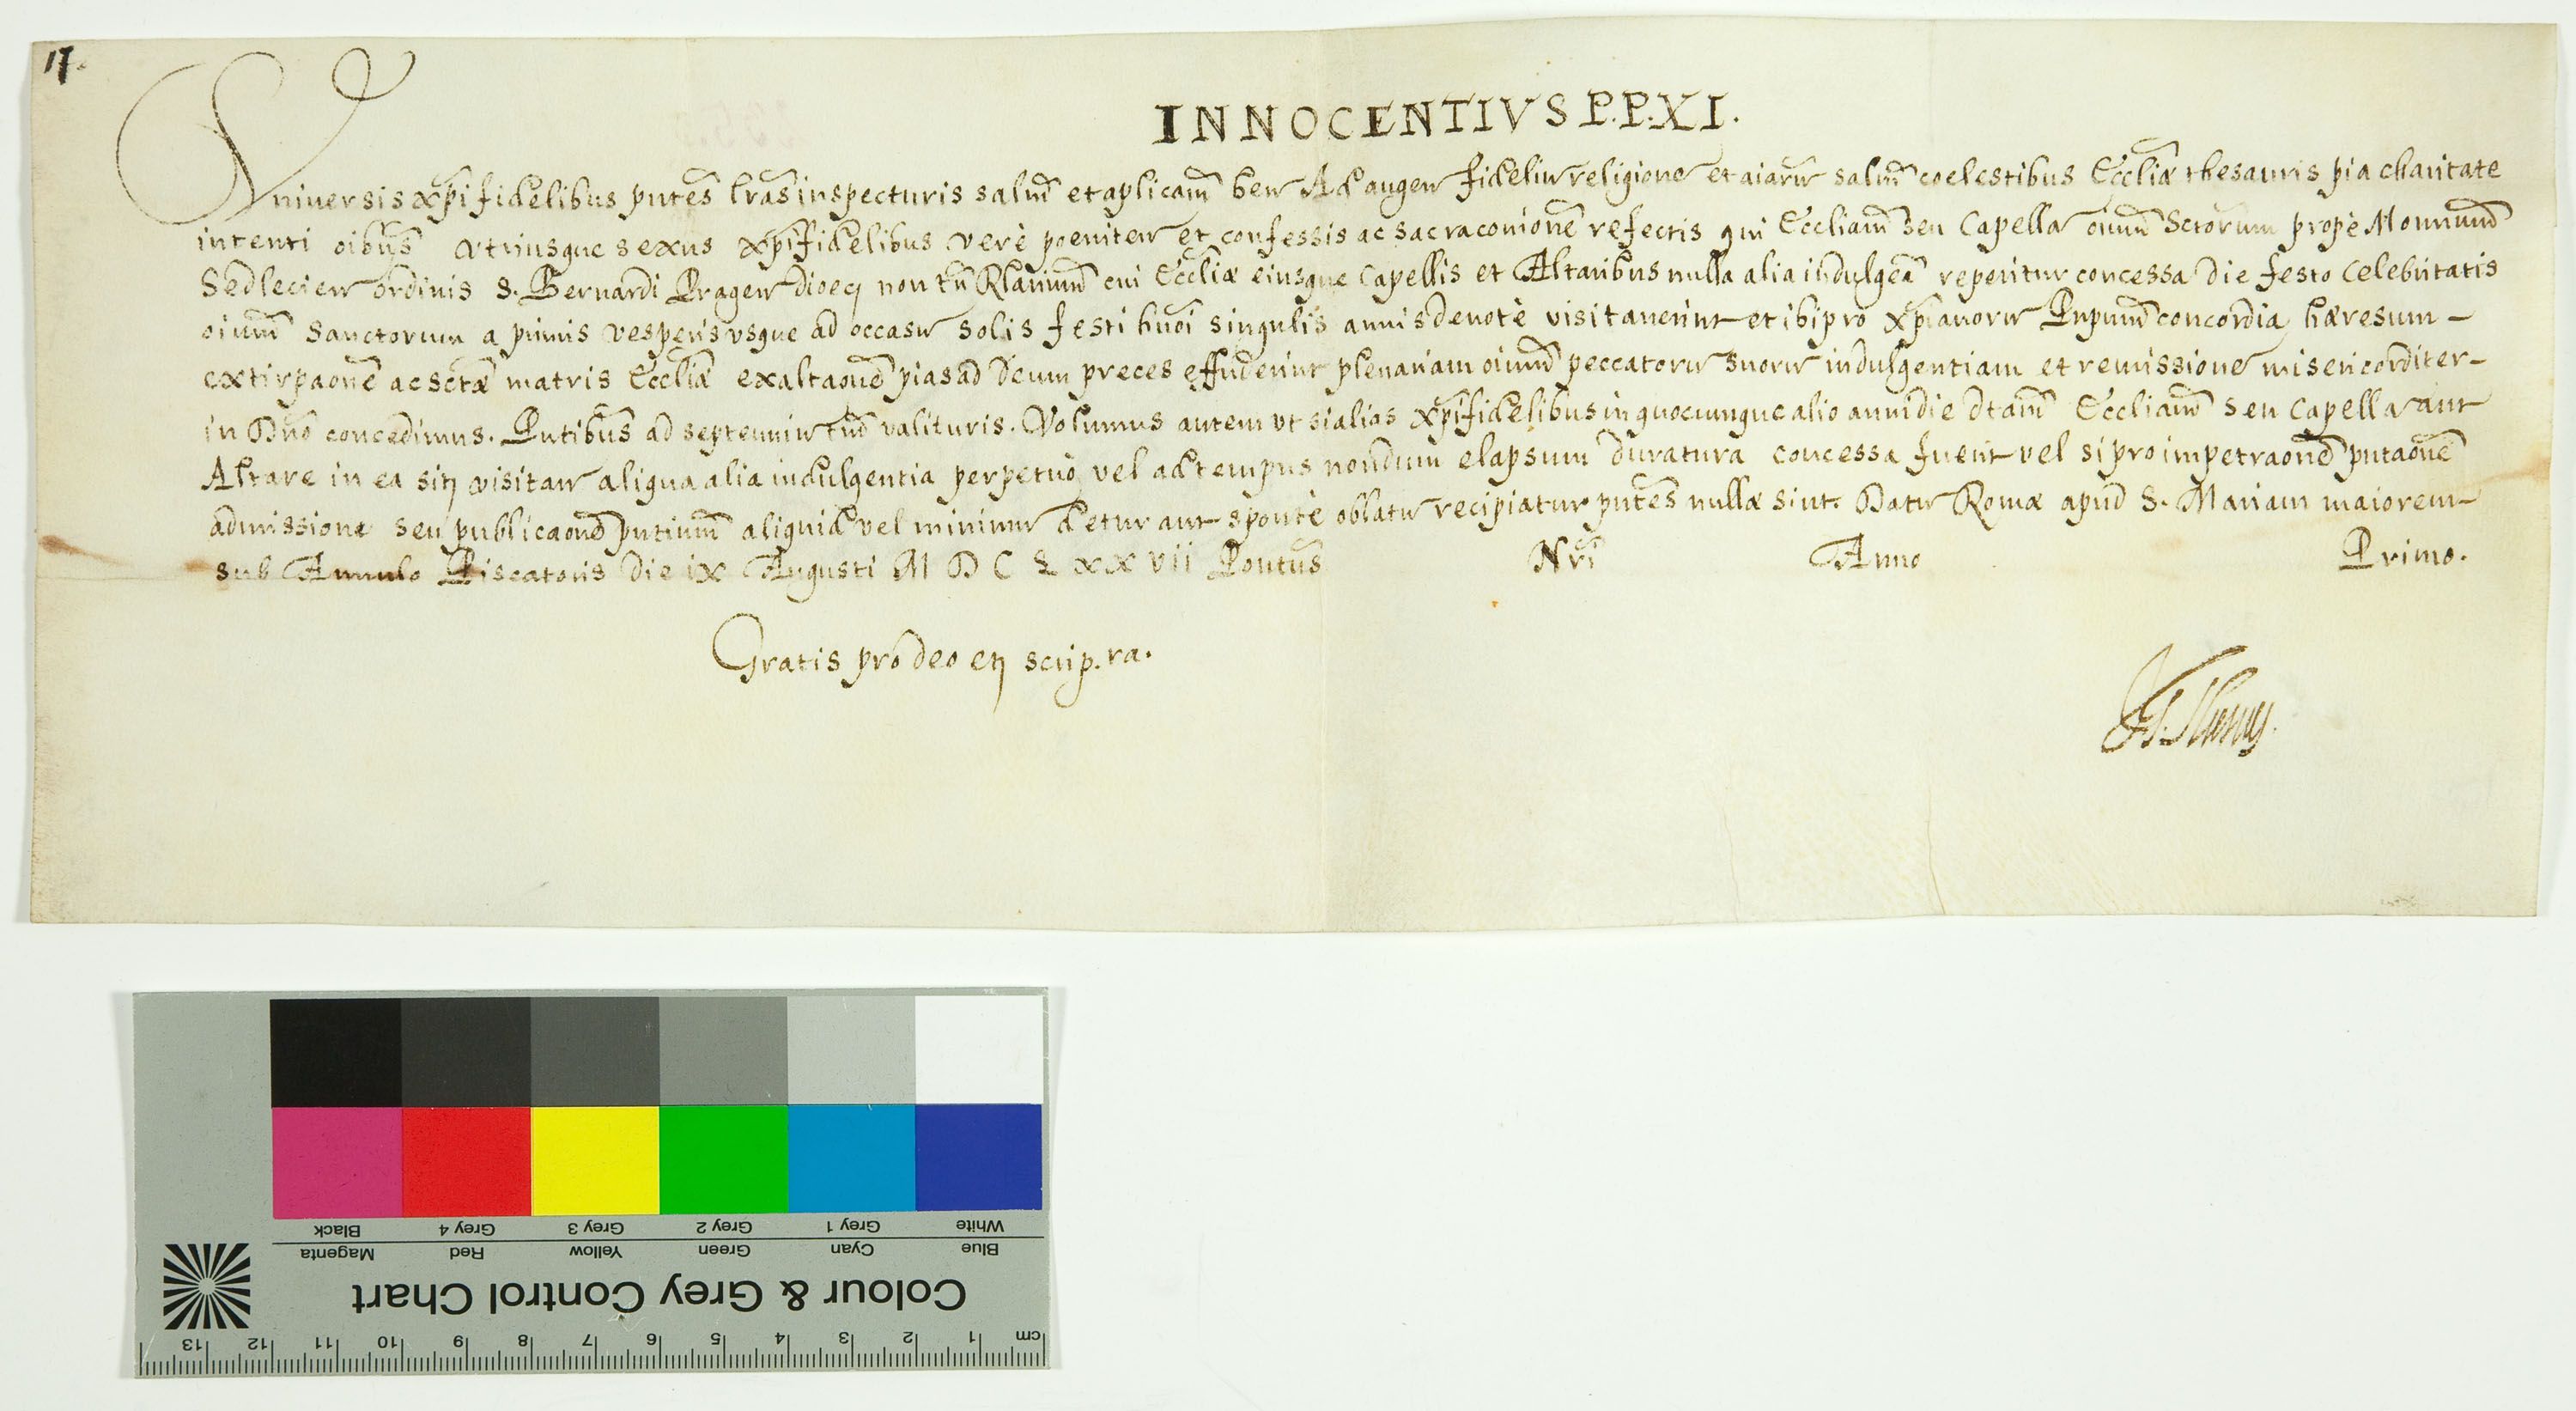 17.
INNOCENTIVS P.P. XI.
Vniversis Xpi fidelibus pntes lras inspecturis salut et aplicam ben Ad augen fideliu religione et aiaru salut coelestibus Eccliæ thesauris pia charitate
intenti oibus vtriusque sexus Xpi fidelibus verè poeniten et confessis ac sacra conione refectis qui Eccliam seu Capella oium Sctorum propè Monrium
Sedlecien ordinis S. Bernardi Pragen dioecj non tn Rlarium cui Eccliæ eiusque Capellis et Altaribus nulla alia indulgea reperitur concessa die festo Celebritatis
oium Sanctorum a primis vesperis vsque ad occasu solis festi huoi singulis annis deuotè visitauerint et ibi pro Xpianoru Pnpum concordia, hæresum -
extirpaone ac sctæ matris Eccliæ exaltaone pias ad Deum preces effuderint plenariam oium peccatoru suoru indulgentiam et remissione misericorditer -
in Dno concedimus. Pntibus ad septenniu tm valituris. Volumus autem vt si alias Xpi fidelibus in quocunque alio anni die dtam Eccliam seu Capella aut
Altare in ea sitj visitan aliqua alia indulgentia perpetuò vel ad tempus nondum elapsum duratura concessa fuerit vel si pro impetraone pntaone
admissione seu publicaone pntium aliquid vel minimu detur aut spontè oblatu recipiatur pntes nullæ sint. Datu Romæ apud S. Mariam maiorem -
sub Annulo Piscatoris die ix Augusti M D C L xx vii Pontus Nri Anno Primo.
Gratis pro deo etj scrip.ra.